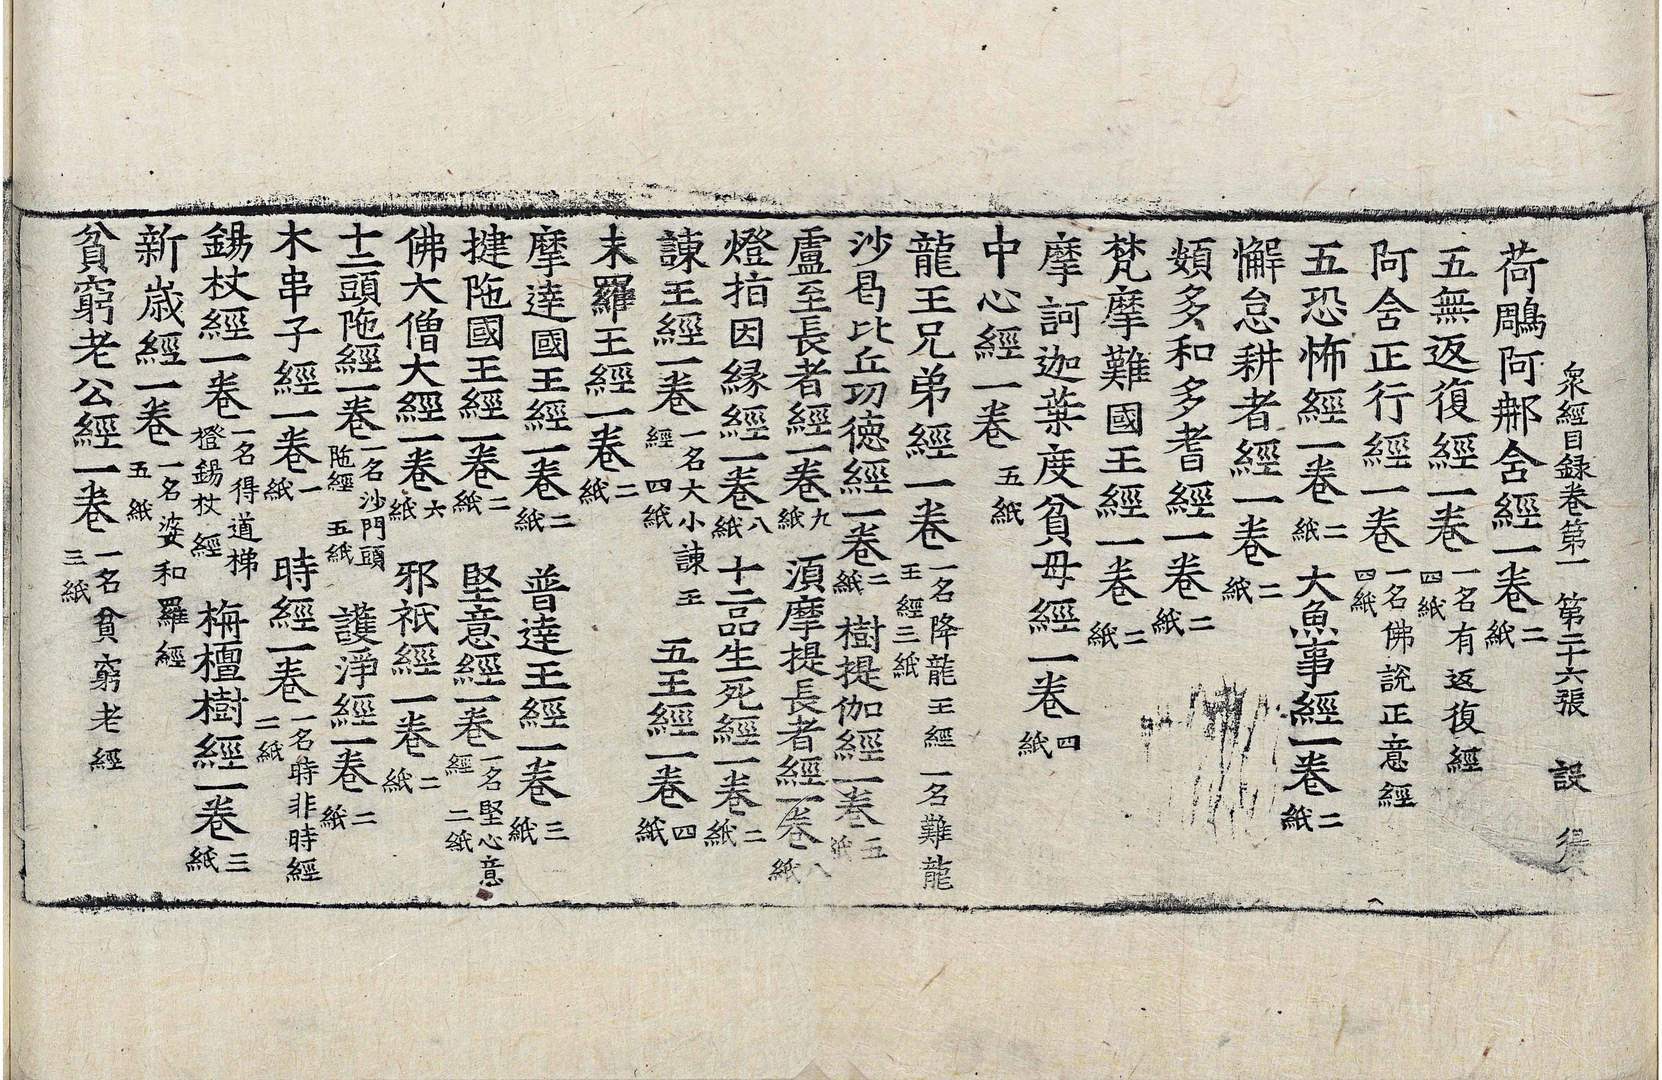 衆經目録卷第一 第二十六張 設
荷鵰阿郍含經一卷二紙
五無返復經一卷一名有返復經四紙
阿含正行經一卷一名佛說正意經四紙
五恐怖經一卷二紙 大魚事經一卷二紙
懈怠耕者經一卷二紙
頞多和多耆經一卷二紙
梵摩難國王經一卷二紙
摩訶迦葉度貧母經一卷四紙
中心經一卷五紙
龍王兄弟經一卷一名降龍王經 一名難龍王經三紙
沙曷比丘功德經一卷二紙 樹提伽經一卷三紙
盧至長者經一卷九紙 須摩提長者經一卷八紙
燈指因縁經一卷八紙 十二品生死經一卷二紙
諫王經一卷一名大小諫王經四紙 五王經一卷四紙
末羅王經一卷二紙
摩達國王經一卷二紙 普達王經一卷三紙
揵陁國王經一卷二紙 堅意經一卷一名堅心意經二紙
佛大僧大經一卷六紙 邪祇經一卷二紙
十二頭陁經一卷一名沙門頭陁經五紙 護淨經一卷二紙
木串子經一卷一紙 時經一卷一名時非時經二紙
錫杖經一卷一名得道梯橙錫杖經 栴檀樹經一卷三紙
新歲經一卷一名婆和羅經五紙
貧窮老公經一卷一名貧窮老經三紙